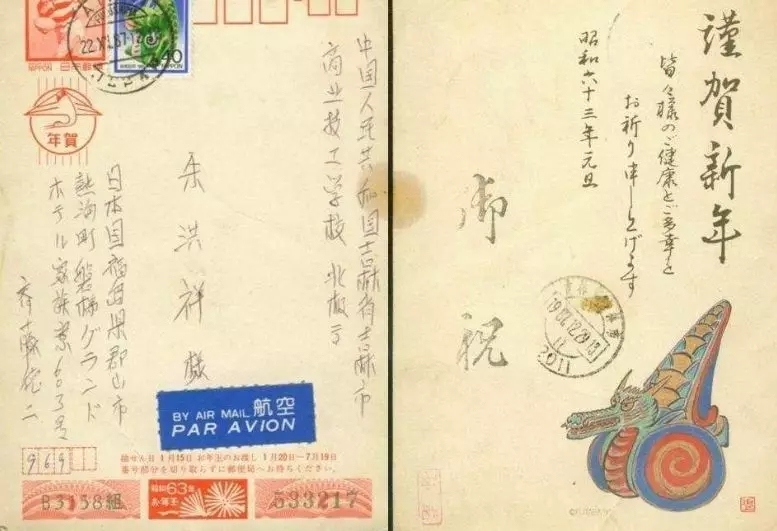 NIPPON 日本郵便
40
年賀
中国人民共和国吉林省吉林市
商业技工学校
洪祥 様
日本国福島県郡山市
熱海町磐梯グランド
ホテル家族寮603号
BY AIR MAIL 航空
PAR AVION
抽せん日1月15日 お年玉のお渡し 1月20日〜7月19日
番号部分を切り取らずに郵便局へお持ちください。
969
B3158組
昭和63年
お年玉
533217
謹賀新年
皆々様のご健康とご多幸を
お祈り申し上げます
昭和六十三年元旦
御祝